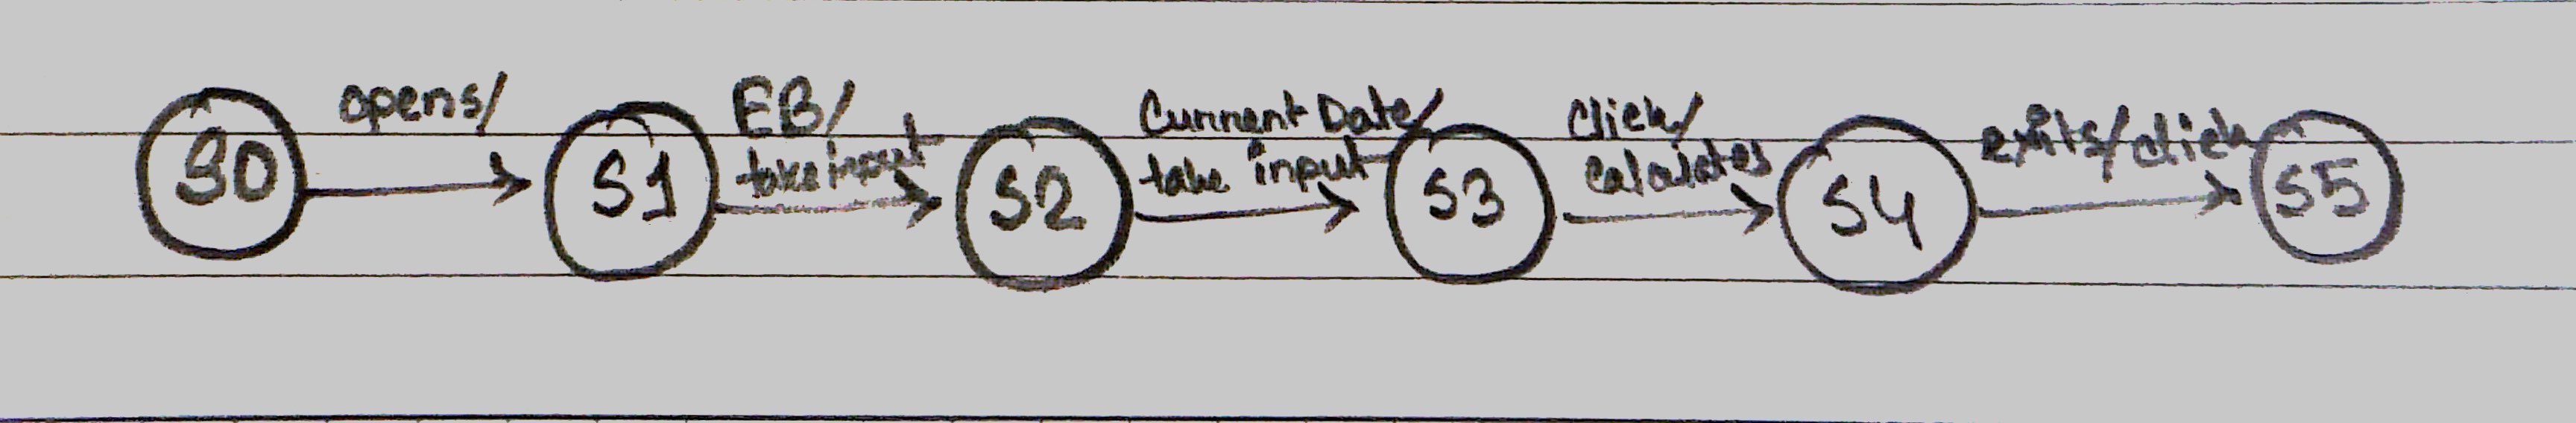 S0
opens/
S1
EB/
take input
S2
Current Date/
take input
S3
Click/
Calculates
S4
exits/click
S5